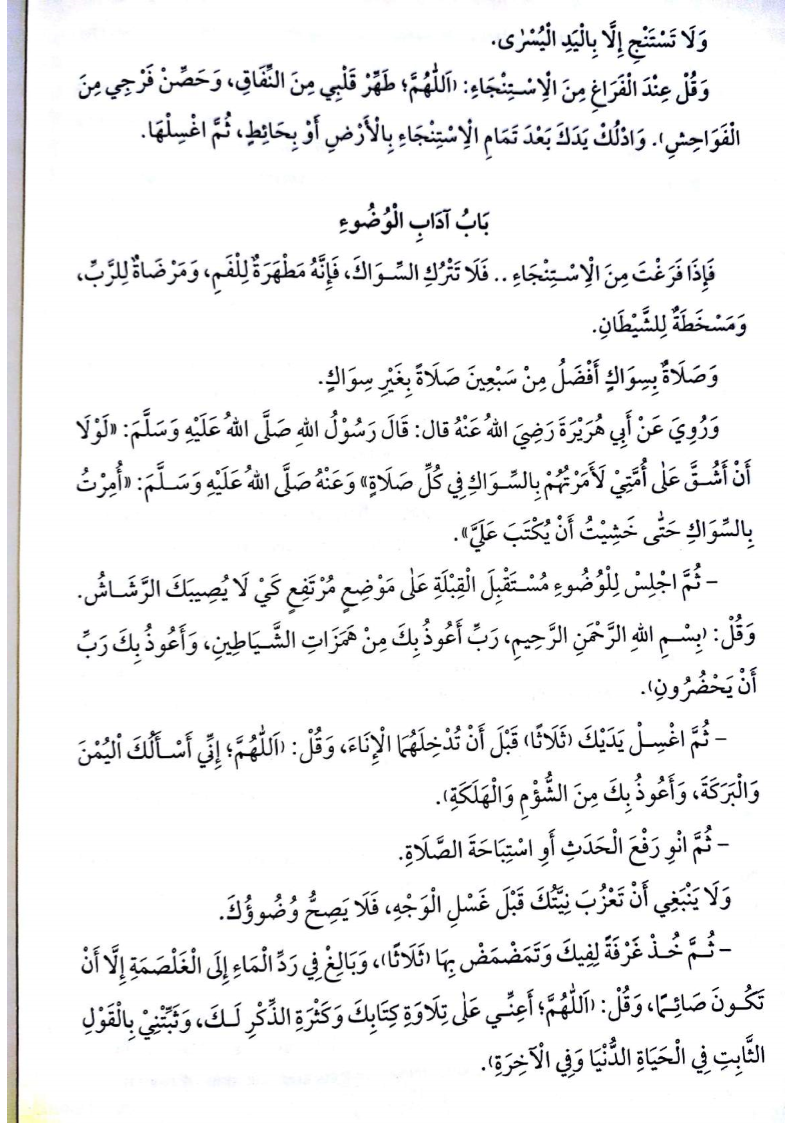 وَلَا تَسْتَنْجِ إِلَّا بِالْيَدِ الْيُسْرٰى.
وَقُلْ عِنْدَ الْفَرَاغِ مِنَ الْاِسْتِنْجَاءِ: (اَللّٰهُمَّ؛ طَهِّرْ قَلْبِي مِنَ النِّفَاقِ، وَحَصِّنْ فَرْجِي مِنَ
الْفَوَاحِشِ). وَادْلُكْ يَدَكَ بَعْدَ تَمَامِ الْاِسْتِنْجَاءِ بِالْأَرْضِ أَوْ بِحَائِطٍ، ثُمَّ اغْسِلْهَا.
بَابُ آدَابِ الْوُضُوءِ
فَإِذَا فَرَغْتَ مِنَ الْاِسْتِنْجَاءِ .. فَلَا تَتْرُكِ السِّوَاكَ، فَإِنَّهُ مَطْهَرَةٌ لِلْفَمِ، وَمَرْضَاةٌ لِلرَّبِّ،
وَمَسْخَطَةٌ لِلشَّيْطَانِ.
وَصَلَاةٌ بِسِوَاكٍ أَفْضَلُ مِنْ سَبْعِينَ صَلَاةً بِغَيْرِ سِوَاكٍ.
وَرُوِيَ عَنْ أَبِي هُرَيْرَةَ رَضِيَ اللهُ عَنْهُ قال: قَالَ رَسُوْلُ اللهِ صَلَّى اللهُ عَلَيْهِ وَسَلَّمَ: «لَوْلَا
أَنْ أَشُقَّ عَلٰى أُمَّتِيْ لَأَمَرْتُهُمْ بِالسِّوَاكِ فِي كُلِّ صَلَاةٍ» وَعَنْهُ صَلَّى اللهُ عَلَيْهِ وَسَلَّمَ: «أُمِرْتُ
بِالسِّوَاكِ حَتّٰى خَشِيْتُ أَنْ يُكْتَبَ عَلَيَّ».
- ثُمَّ اجْلِسْ لِلْوُضُوءِ مُسْتَقْبِلَ الْقِبْلَةِ عَلٰى مَوْضِعٍ مُرْتَفِعٍ كَيْ لَا يُصِيبَكَ الرَّشَاشُ.
وَقُلْ: (بِسْمِ اللهِ الرَّحْمَنِ الرَّحِيمِ، رَبِّ أَعُوذُ بِكَ مِنْ هَمَزَاتِ الشَّيَاطِينِ، وَأَعُوذُ بِكَ رَبِّ
أَنْ يَحْضُرُونِ).
- ثُمَّ اغْسِلْ يَدَيْكَ (ثَلَاثًا) قَبْلَ أَنْ تُدْخِلَهُمَا الْإِنَاءَ، وَقُلْ: (اَللّٰهُمَّ؛ إِنِّي أَسْأَلُكَ اْليُمْنَ
وَالْبَرَكَةَ، وَأَعُوذُ بِكَ مِنَ الشُّؤْمِ وَالْهَلَكَةِ).
- ثُمَّ انْوِ رَفْعَ الْحَدَثِ أَوِ اسْتِبَاحَةَ الصَّلَاةِ.
وَلَا يَنْبَغِي أَنْ تَعْزُبَ نِيَّتُكَ قَبْلَ غَسْلِ الْوَجْهِ، فَلَا يَصِحُّ وُضُوؤُكَ.
- ثُمَّ خُذْ غَرْفَةً لِفِيكَ وَتَمَضْمَضْ بِهَا (ثَلَاثًا)، وَبَالِغْ فِي رَدِّ الْمَاءِ إِلَى الْغَلْصَمَةِ إِلَّا أَنْ
تَكُونَ صَائِمًا، وَقُلْ: (اَللّٰهُمَّ؛ أَعِنِّي عَلٰى تِلَاوَةِ كِتَابِكَ وَكَثْرَةِ الذِّكْرِ لَكَ، وَثَبِّتْنِيْ بِالْقَوْلِ
الثَّابِتِ فِي الْحَيَاةِ الدُّنْيَا وَفِي الْآخِرَةِ).